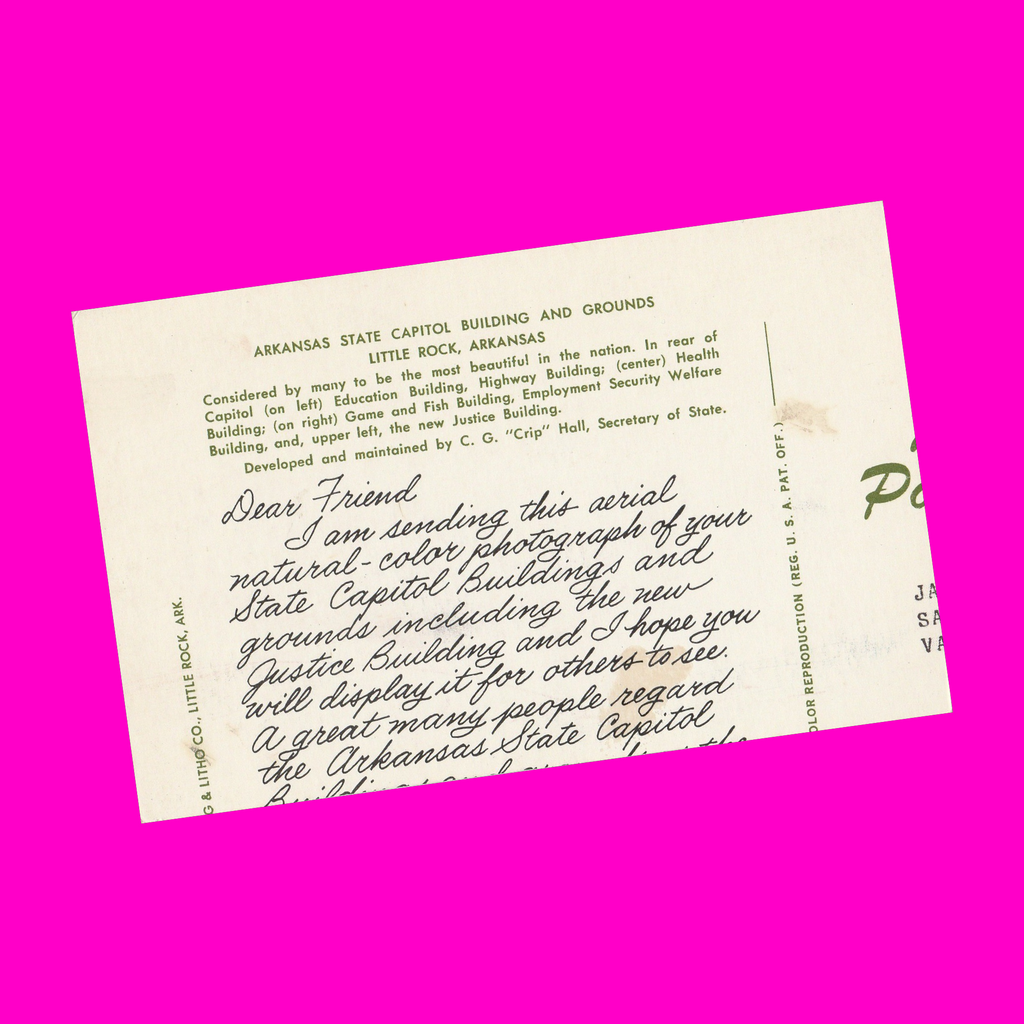 ARKANSAS STATE CAPITOL BUILDING AND GROUNDS
LITTLE ROCK, ARKANSAS
Considered by many to be the most beautiful in the nation. In rear of
Capitol (on left) Education Building, Highway Building; (center) Health
Building; (on right) Game and Fish Building, Employment Security Welfare
Building, and, upper left, the new Justice Building.
Developed and maintained by C. G. "Crip" Hall, Secretary of State.
Dear Friend
I am sending this aerial
natural-color photograph of your
State Capitol Buildings and
grounds including the new
Justice Building and I hope you
will display it for others to see.
A great many people regard
the Arkansas State Capitol
G & LITHO CO., LITTLE ROCK, ARK.
OLOR REPRODUCTION (REG. U. S. A. PAT. OFF.)
Po
JA
SA
VA